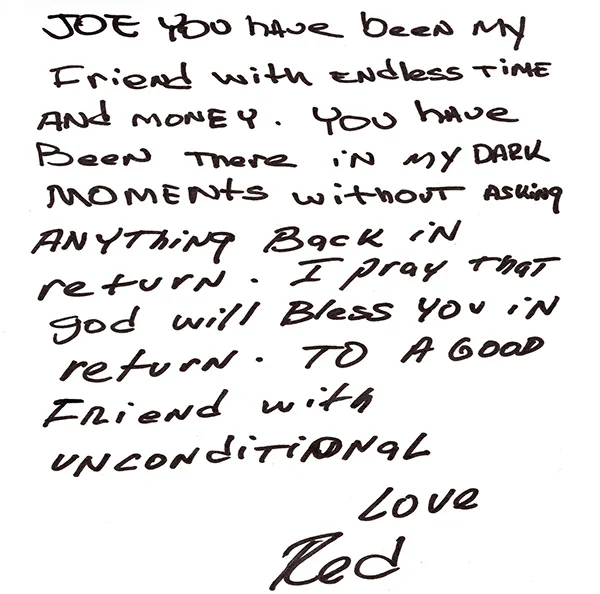 JOE YOU have been my
Friend with ENdless TIME
AND MONEY. YOU have
Been There in my DARK
MOMENTS without Asking
ANYThiNg Back iN
return. I pray that
god will Bless YOU iN
return. TO A GOOD
Friend with
UNCONdiTiONaL
Love
Red